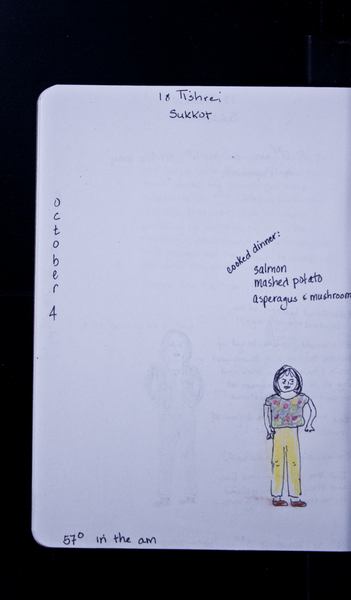 18 Tishrei
Sukkot
october 4
cooked dinner:
salmon
mashed potato
asparagus & mushroom
57° in the am